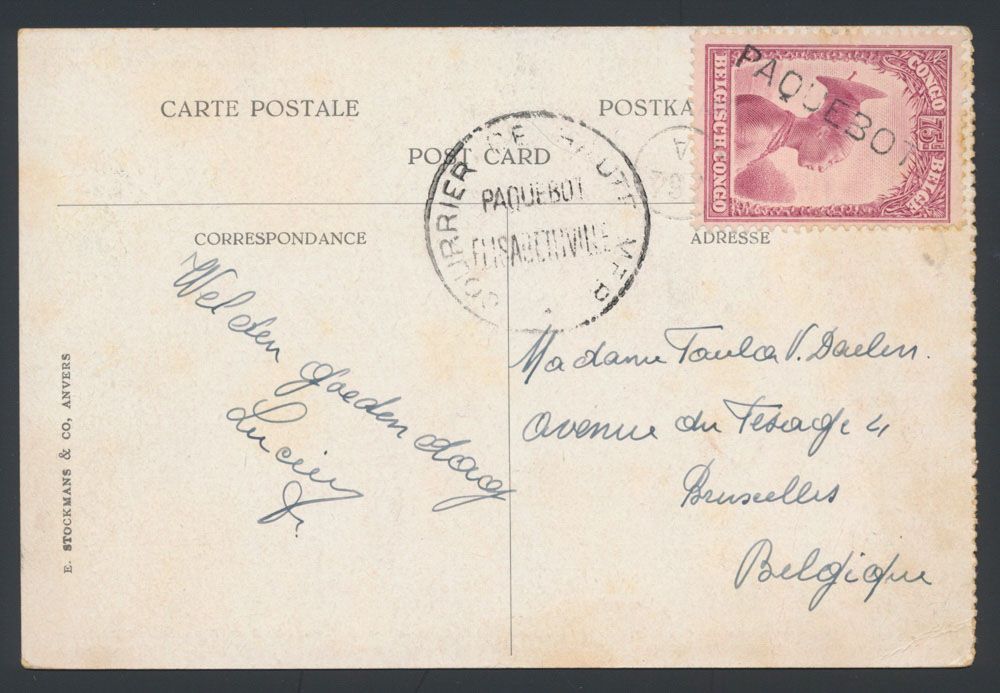 CARTE POSTALE
POSTKA
POST CARD
PAQUEBOT
CONGO 75c BELGE
BELGISCH CONGO
COURRIER DE HAUTE MER
PAQUEBOT
ELISABETHVILLE
A
CORRESPONDANCE
ADRESSE
Welden goeden dag
Lucien
Madame Paula V. Daelen.
Avenue du Pesage 4
Bruxelles
Belgique
E. STOCKMANS & CO, ANVERS